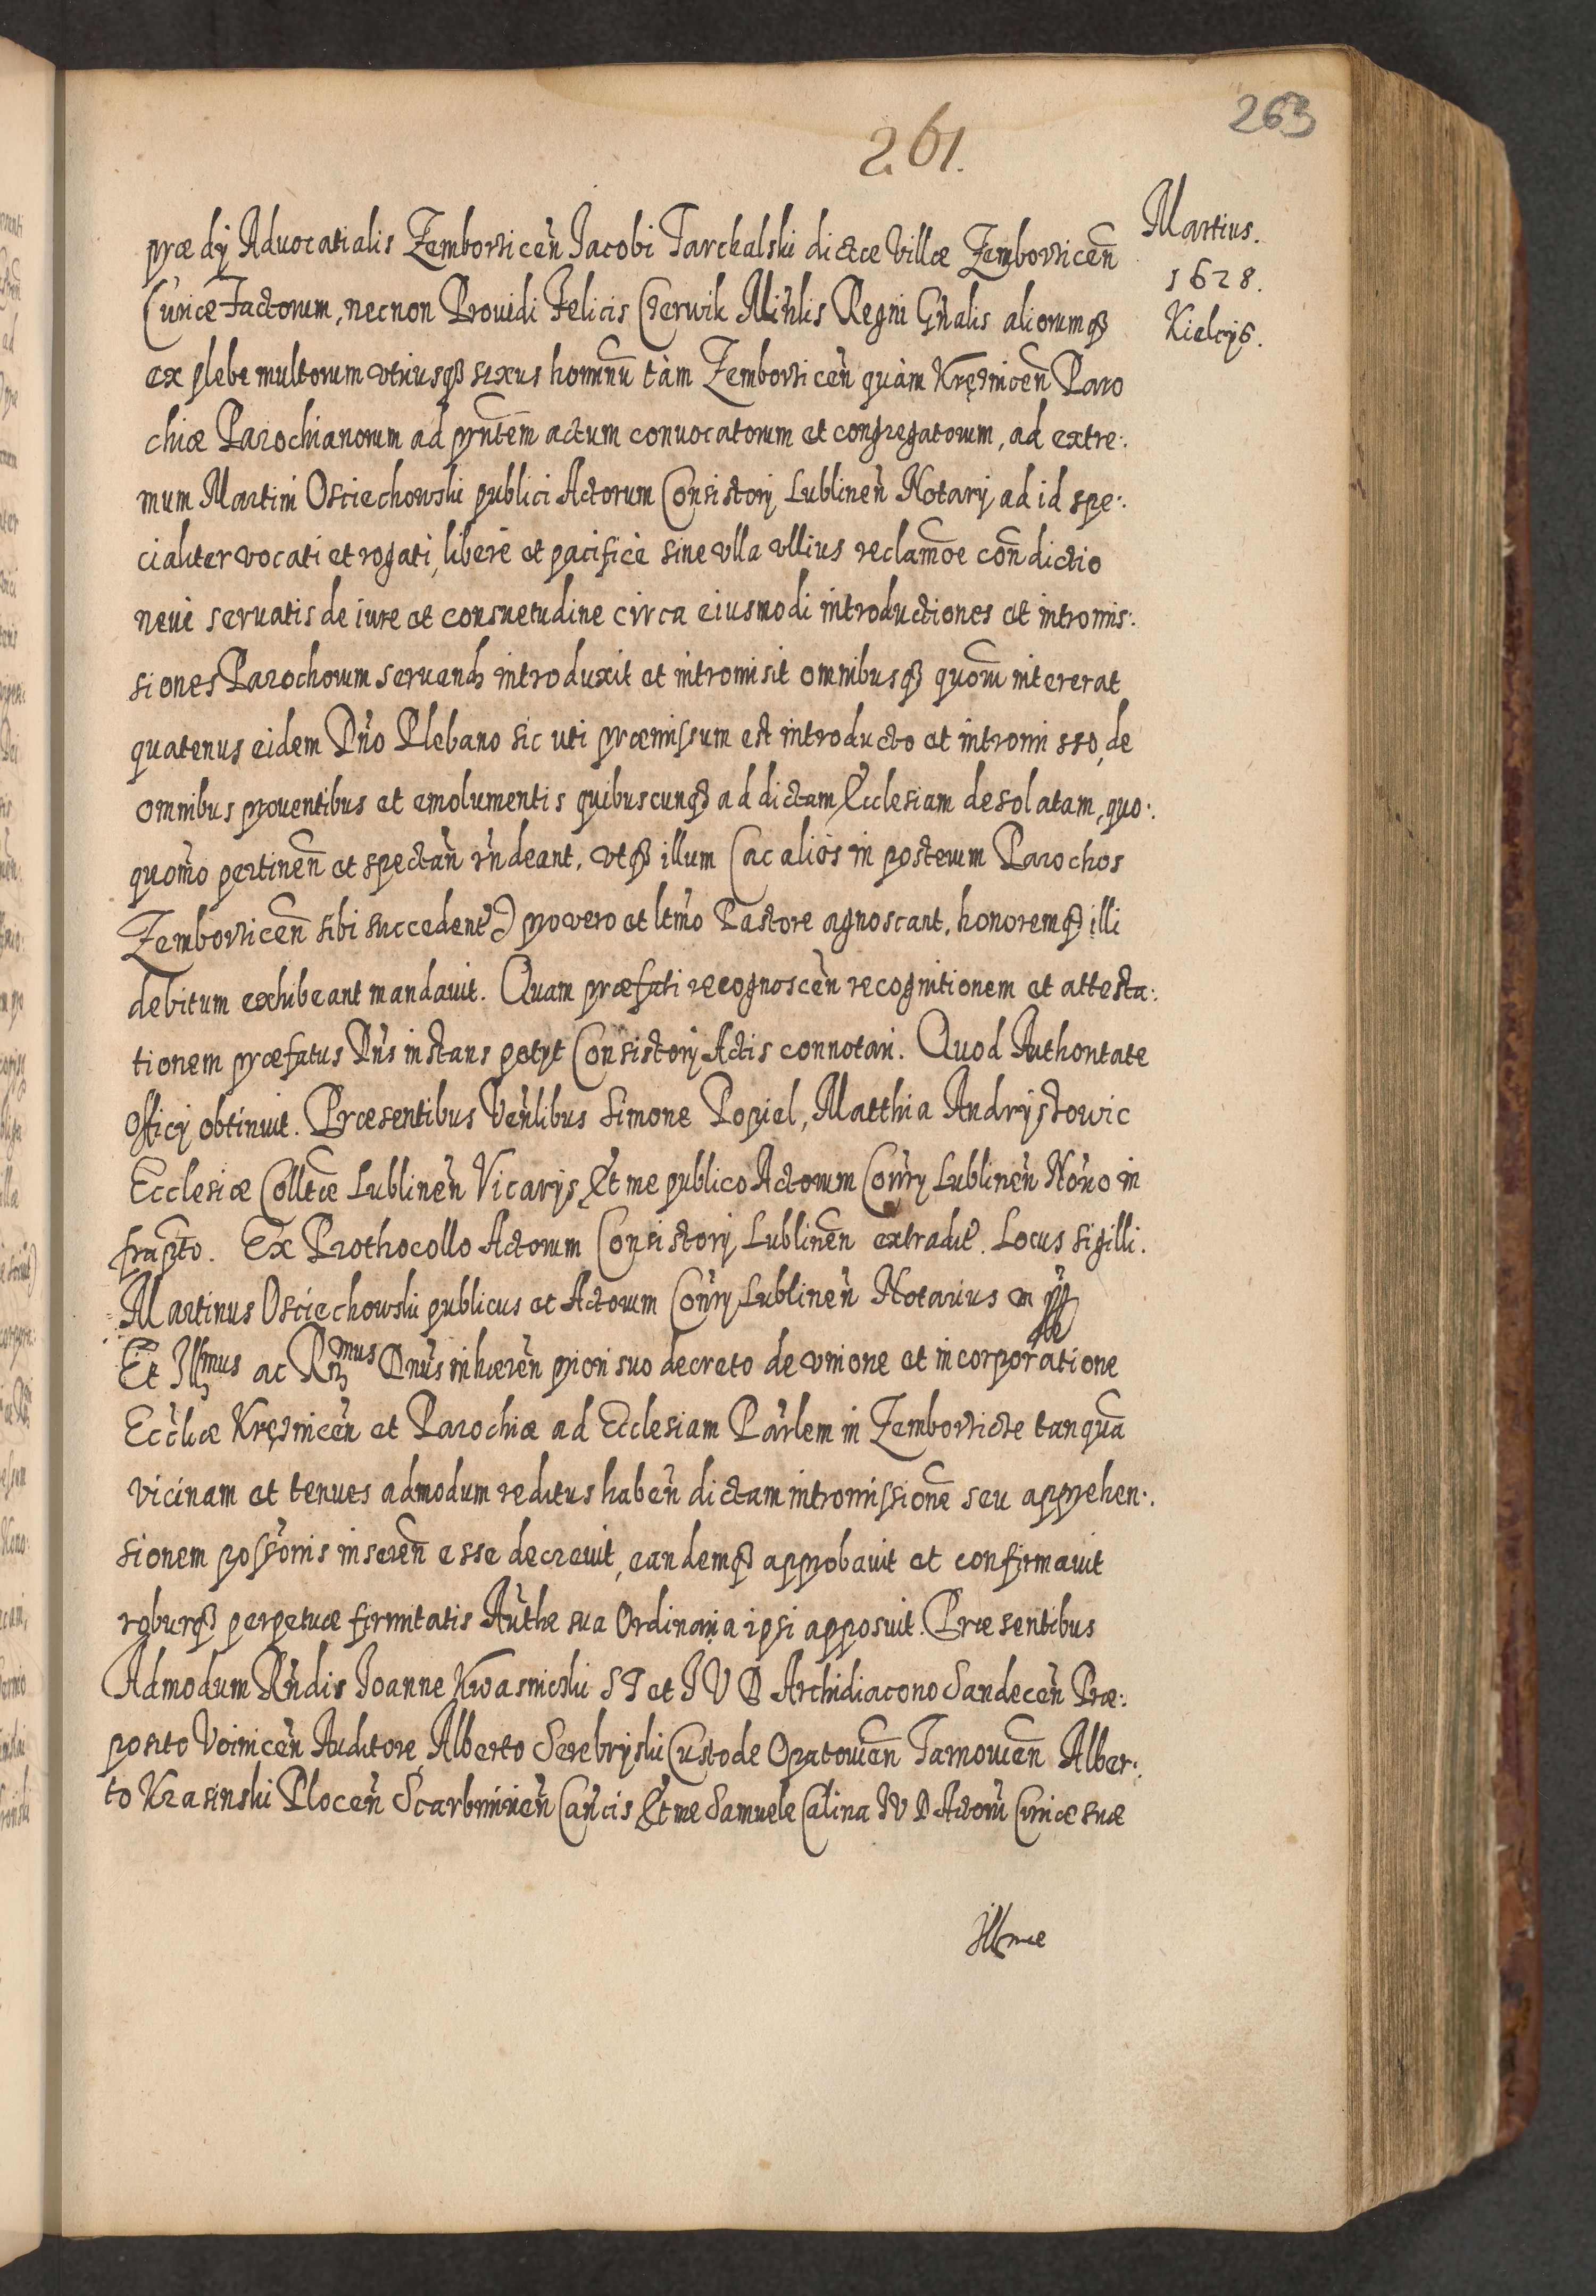 263
261.
Martius.
1628.
Kielcijs.
prædij Aduocatialis Zemborzicen̄ Jacobi Tarchalski dictæ Villæ Zemborzicen̄
Curiæ Factorum, necnon Prouidi Felicis Czerwik Min̄lis Regni Gn̄alis aliorumqꝫ
ex plebe multorum vtriusqꝫ sexus hominū tàm Zemborzicen̄ quàm Krężnicen̄ Paro
chiæ Parochianorum ad pn̄tem actum conuocatorum et congregatorum, ad extre:
mum Martini Osciechowski publici Actorum Consistorij Lublinen̄ Notarij ad id spe:
cialiter vocati et rogati, liberè et pacificè sine vlla vllius reclamōe con̄dictio
neuè seruatis de iure et consuetudine circa eiusmodi introductiones et intromis:
siones Parochorum seruand introduxit et intromisit omnibusqꝫ quorū intererat
quatenus eidem Dn̄o Plebano sic uti præmissum est introducto et intromisso, de
omnibus prouentibus et emolumentis quibuscunqꝫ ad dictam Ecclesiam desolatam, quo:
quomō pertinen̄ et spectan̄ rn̄deant, vtqꝫ illum (ac alios in posterum Parochos
Zemborzicen̄ sibi succedent) pro vero et ltm̄o Pastore agnoscant, honoremqꝫ illi
debitum exhibeant mandauit. Quam præfati recognoscen̄ recognitionem et attesta:
tionem præfatus Dn̄s instans petijt Consistorij Actis connotari. Quod Authoritate
Officij obtinuit. Præsentibus Ven̄libus Simone Popiel, Matthia Andrysowic
Ecclesiæ Colltæ Lublinen̄ Vicarijs, Et me publico Actorum Con̄rij Lublinen̄ Not̄io in
frapt̄o. Ex Prothocollo Actorum Consistorij Lublinen̄ extradit. Locus sigilli.
Martinus Osciechowski publicus et Actorum Con̄rij Lublinen̄ Notarius m pp
Et Illmus ac Rn̄mus Dn̄us inhæren̄ priori suo decreto de vnione et incorporatione
Eccl̄iæ Krężnicen̄ et Parochiæ ad Ecclesiam Par̄lem in Zemborzicze tanquā
vicinam et tenues admodum reditus haben̄ dictam intromissionē seu apprehen:
sionem poss̄onis inseren̄ esse decreuit, eandemqꝫ approbauit et confirmauit
roburqꝫ perpetuæ firmitatis Aut̄he sua Ordinaria ipsi apposuit. Præsentibus
Admodum Rn̄dis Ioanne Kwasnicski S T et J V D Archidiacono Sandecen̄ Præ:
posito Voinicen̄ Auditore, Alberto Serebryski Custode Opatouien̄ Tarnouien̄ Alber:
to Krasinski Plocen̄ Scarbimirien̄ Can̄cis Et me Samuele Calina J V D Actorū Curiæ suæ
Illmæ